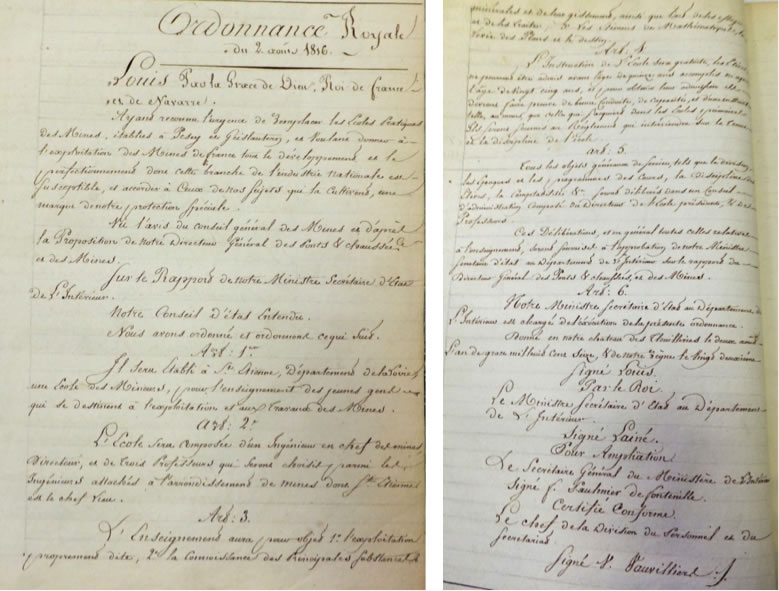 Ordonnance Royale
du 2 août 1816.
Louis Par la Grace de Dieu, Roi de france
et de Navarre.
Ayant reconnu l'urgence de remplacer les Ecoles Pratiques
des Mines, établies à Pesey et Geislautern, et Voulant donner à
l'exploitation des Mines de france tout le développement et le
perfectionnement dont cette branche de l'industrie nationale est
susceptible, et accorder à Ceux de nos Sujets qui la Cultivent, une
marque de notre protection spéciale.
Vu l'avis du Conseil général des Mines et d'après
la Proposition de notre Directeur Général des Ponts & chaussées
et des Mines.
Sur le Rapport de notre Ministre Secrétaire d'Etat
de l'Intérieur.
Notre Conseil d'état Entendu.
Nous avons ordonné et ordonnons ce qui Suit.
Art: 1er
Il sera Etabli à St. Etienne, Département de la Loire
une Ecole des Mineurs, pour l'enseignement des jeunes gens
qui se destinent à l'exploitation et aux travaux des Mines.
Art: 2e
L'Ecole sera Composée d'un Ingénieur en chef des mines
Directeur, et de trois Professeurs qui seront choisis parmi les
Ingénieurs attachés à l'arrondissement de mines dont St. Etienne
est le chef lieu.
Art: 3.
L'Enseignement aura pour objet 1° l'exploitation
proprement dite, 2° la Connaissance des Principales Substances
minérales et de leur gissement, ainsi que l'art de les
et de les traiter, 3° Les Elémens de Mathématiques, la
levée des Plans et le dessin.
Art: 4.
L'Instruction de l'Ecole sera gratuite, les
ne pourront être admis avant l'age de quinze ans accomplis
l'âge de Vingt cinq ans, et pour obtenir leur admission ils
devront faire preuve de bonne Conduite, de Capacité, et d'une
telle, au moins que celle qui s'acquiert dans les Ecoles primaires.
Ils seront soumis au Règlement qui interviendra sur la tenue
et la discipline de l'école.
Art. 5.
Tous les objets généraux de service, tels que la division,
les Epoques et les programmes des Cours, la discipline des
Elèves, la Comptabilité &a. seront délibérés dans un Conseil
d'administration Composé du Directeur de l'Ecole président, & des
Professeurs.
Ces Délibérations, et en général toutes celles relatives
à l'enseignement, seront soumises à l'approbation de notre Ministre
secrétaire d'état au Département de l'Intérieur sur le rapport du
Directeur Général des Ponts & chaussées, et des Mines.
Art: 6.
Notre Ministre secrétaire d'Etat au Département de
l'Intérieur est chargé de l'exécution de la présente ordonnance.
Donné en notre chateau des Thuilleries le deux août
l'an de grace mil huit Cent Seize, & de notre règne le Vingt deuxième
Signé Louis.
Par le Roi
Le Ministre Secrétaire d'Etat au Département
de l'Intérieur.
Signé Lainé.
Pour Ampliation
Le Secrétaire Général du Ministère de l'Intérieur
Signé f. Paulmier de fontenille
Certifié Conforme
Le chef de la Division du Personnel et du
Secrétariat
Signé